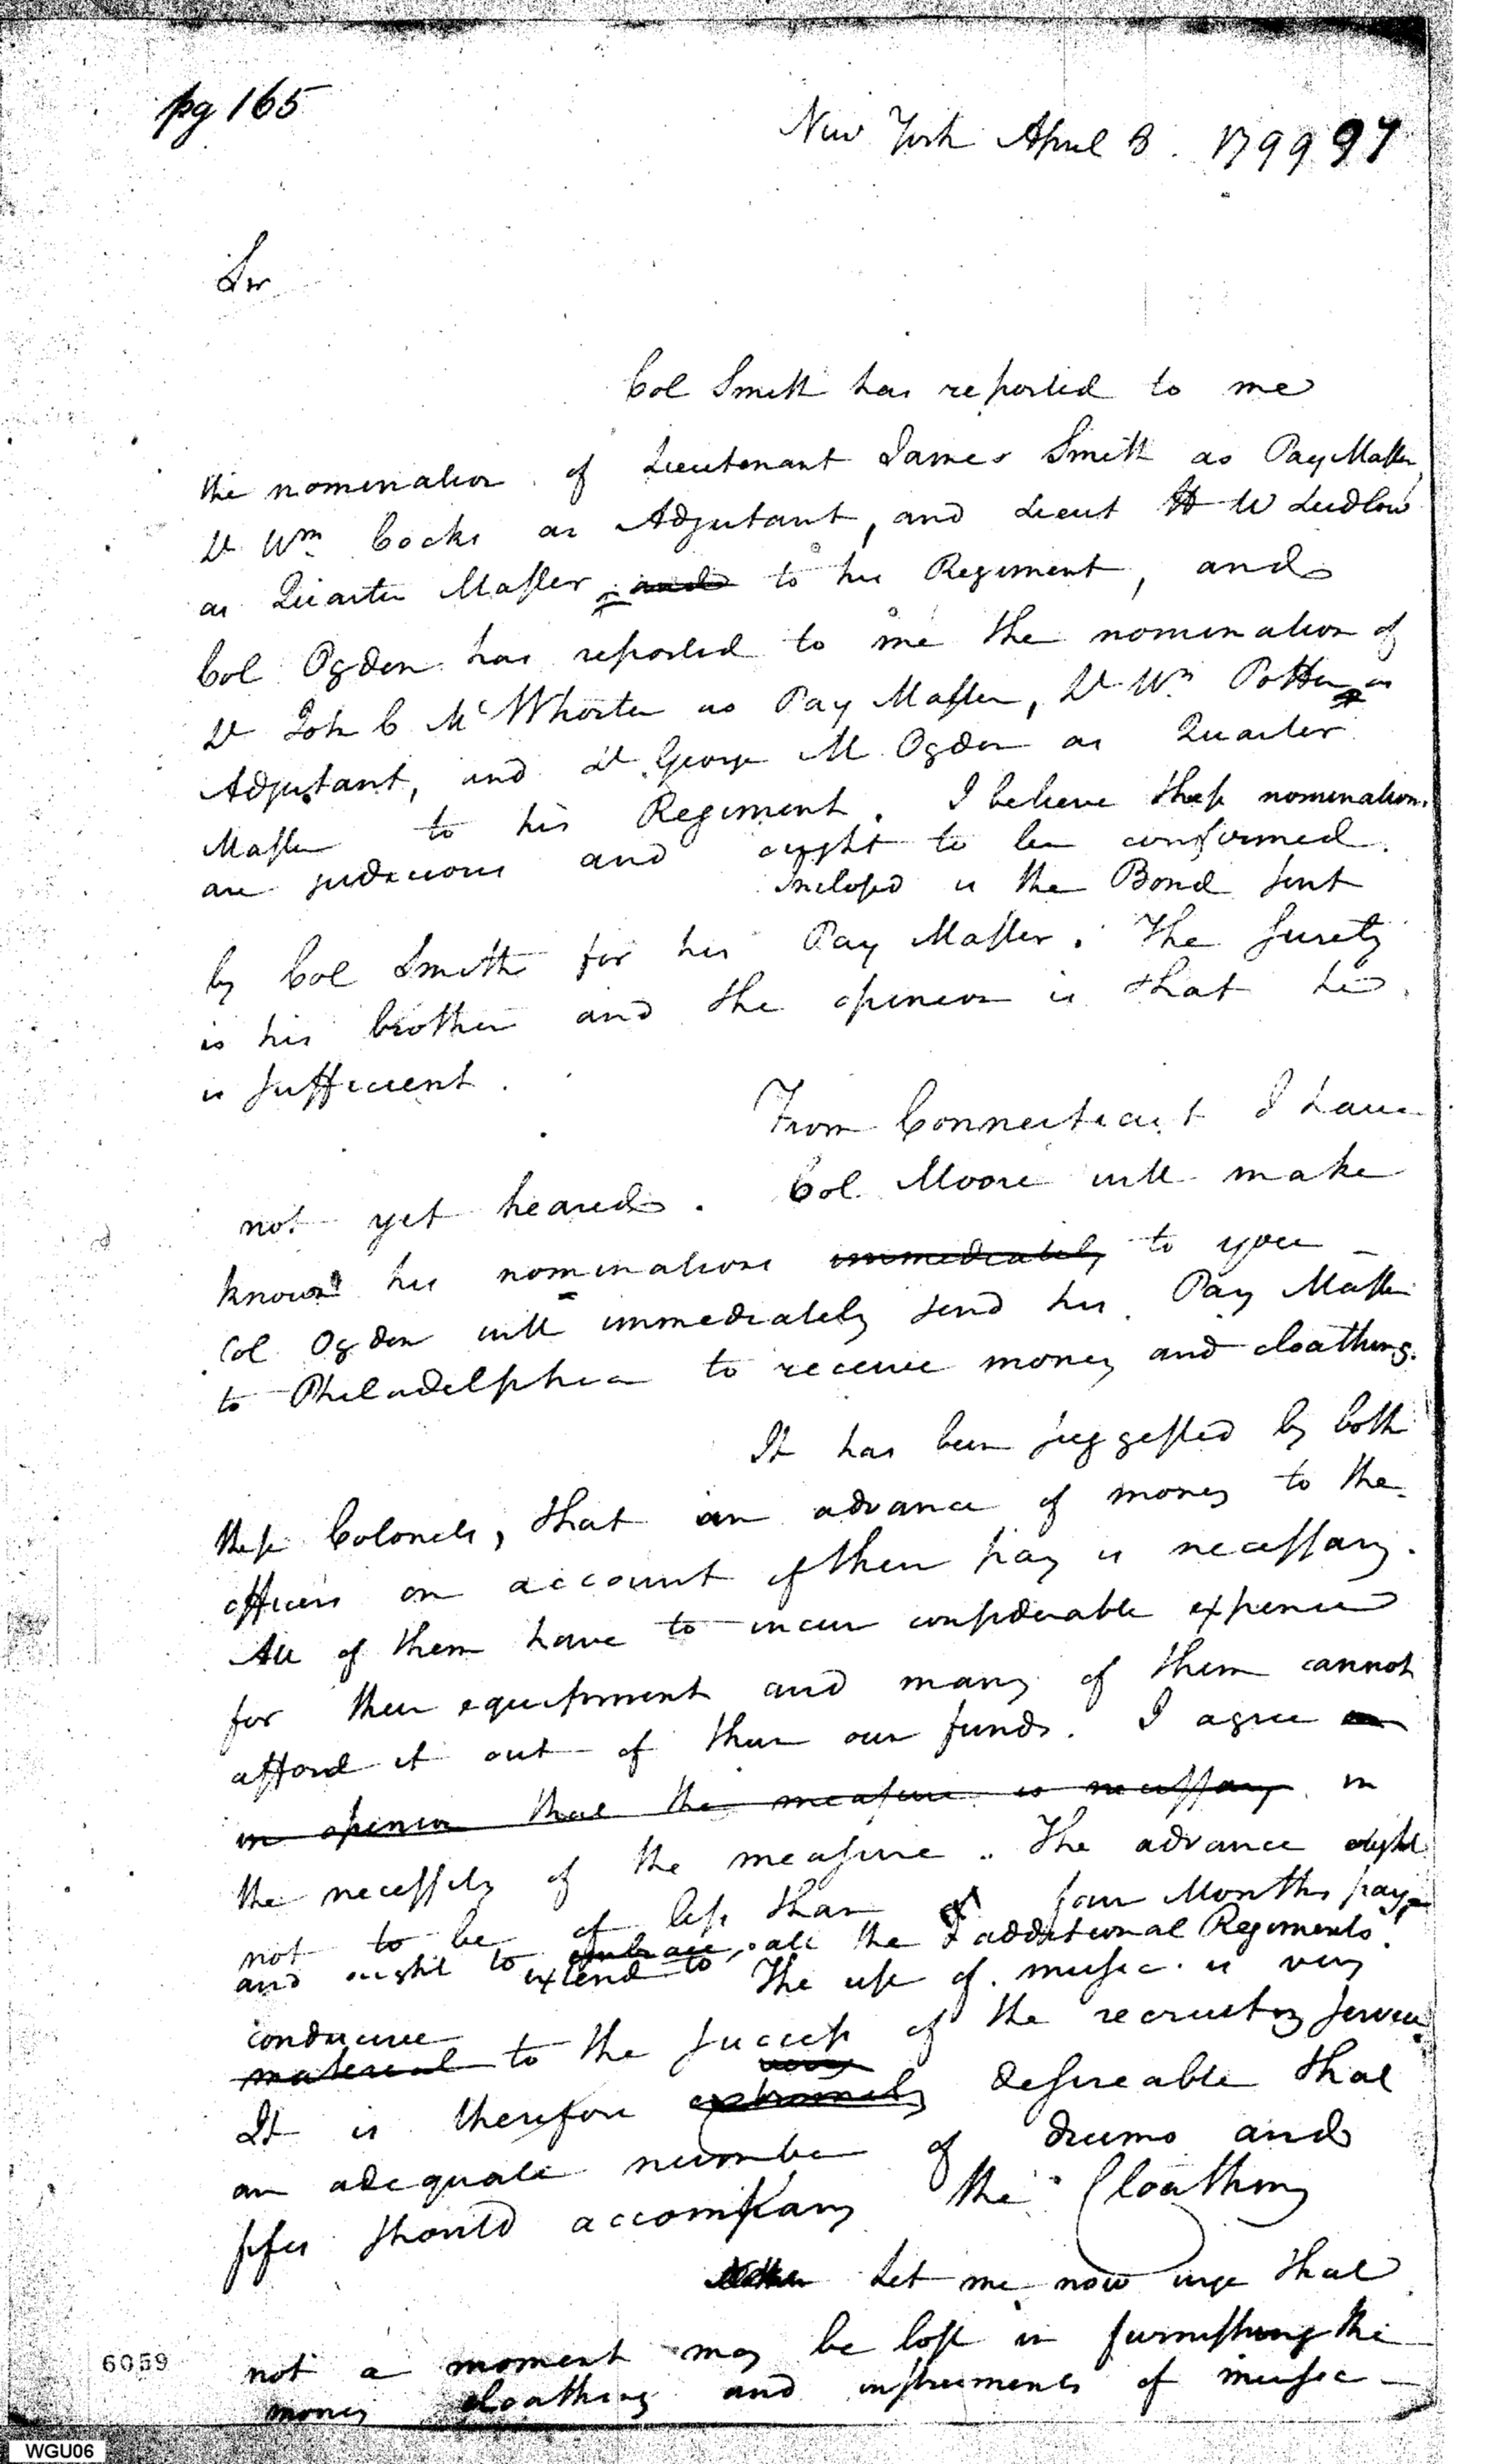 pg 165
New York April 8. 1799 97
Sir
Col Smith has reported to me
the nomination of Lieutenant James Smith as Pay Master,
Lt Wm Cocks as Adjutant, and Lieut H W Ludlow
as Quarter Master, and to his Regiment, and
Col Ogden has reported to me the nomination of
Lt John C McWhorter as Pay Master, Lt Wm Potter as
Adjutant, and Lt George M Ogden as Quarter
Master to his Regiment. I believe these nominations
are judicious and ought to be confirmed.
Inclosed is the Bond sent
by Col Smith for his Pay Master. The surety
is his brother and the opinion is that he
is sufficient.
From Connecticut I have
not yet heared. Col. Moore will make
known his nominations immediately to you—
Col Ogden will immediately send his Pay Master
to Philadelphia to receive money and cloathing.
It has been suggested by both
these Colonels, that an advance of money to the
officers on account of their pay is necessary.
All of them have to incur considerable expence
for their equipment and many of them cannot
afford it out of their own funds. I agree
in opinion that the measure is necessary in
the necessity of the measure. The advance ought
not to be of less than four Months pay
and ought to embrace extend to all the additional Regiments.
The use of music is very
conducive
material to the success of the recruiting service.
very
It is therefore extremely desireable that
an adequate number of drums and
fifes should accompany the Cloathing
Let me now urge that
not a moment may be lost in furnishing the
money cloathing and instruments of music—
6059
WGU06